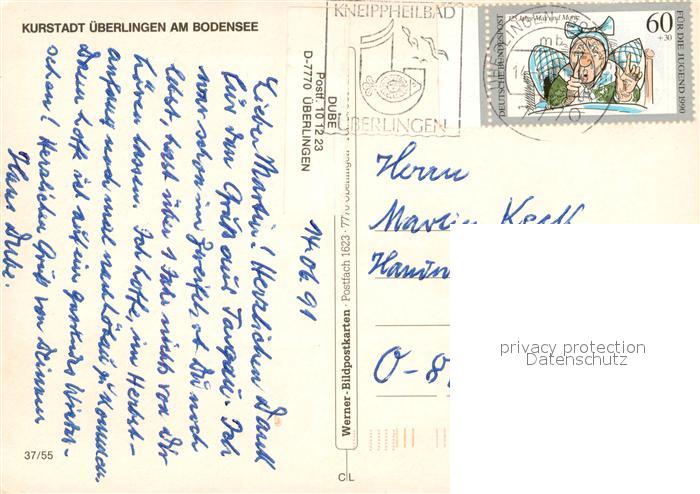 KURSTADT ÜBERLINGEN AM BODENSEE
Lieber Martin! Herzlichen Dank
für den Gruß aus Torgau. Ich
war schon im Zweifel, ob Du noch
lebst, hast über 1 Jahr nichts von Dir
hören lassen. Ich hoffe, im Herbst-
anfang noch mal nach Löbau zu kommen.
Dann hoffe ich auf ein gesundes Wieder-
sehen! Herzlichen Gruß von Deinem
Hans Dube.
14.06.91
37/55
DUBE
Postf. 10 12 23
D-7770 ÜBERLINGEN
Werner-Bildpostkarten · Postfach 1623 · 7770 Überlingen
C L
KNEIPPHEILBAD
ÜBERLINGEN
125 Jahre Max und Moritz
DEUTSCHE BUNDESPOST
60
+30
FÜR DIE JUGEND 1990
mb
Herrn
Martin
O-8
privacy protection
Datenschutz